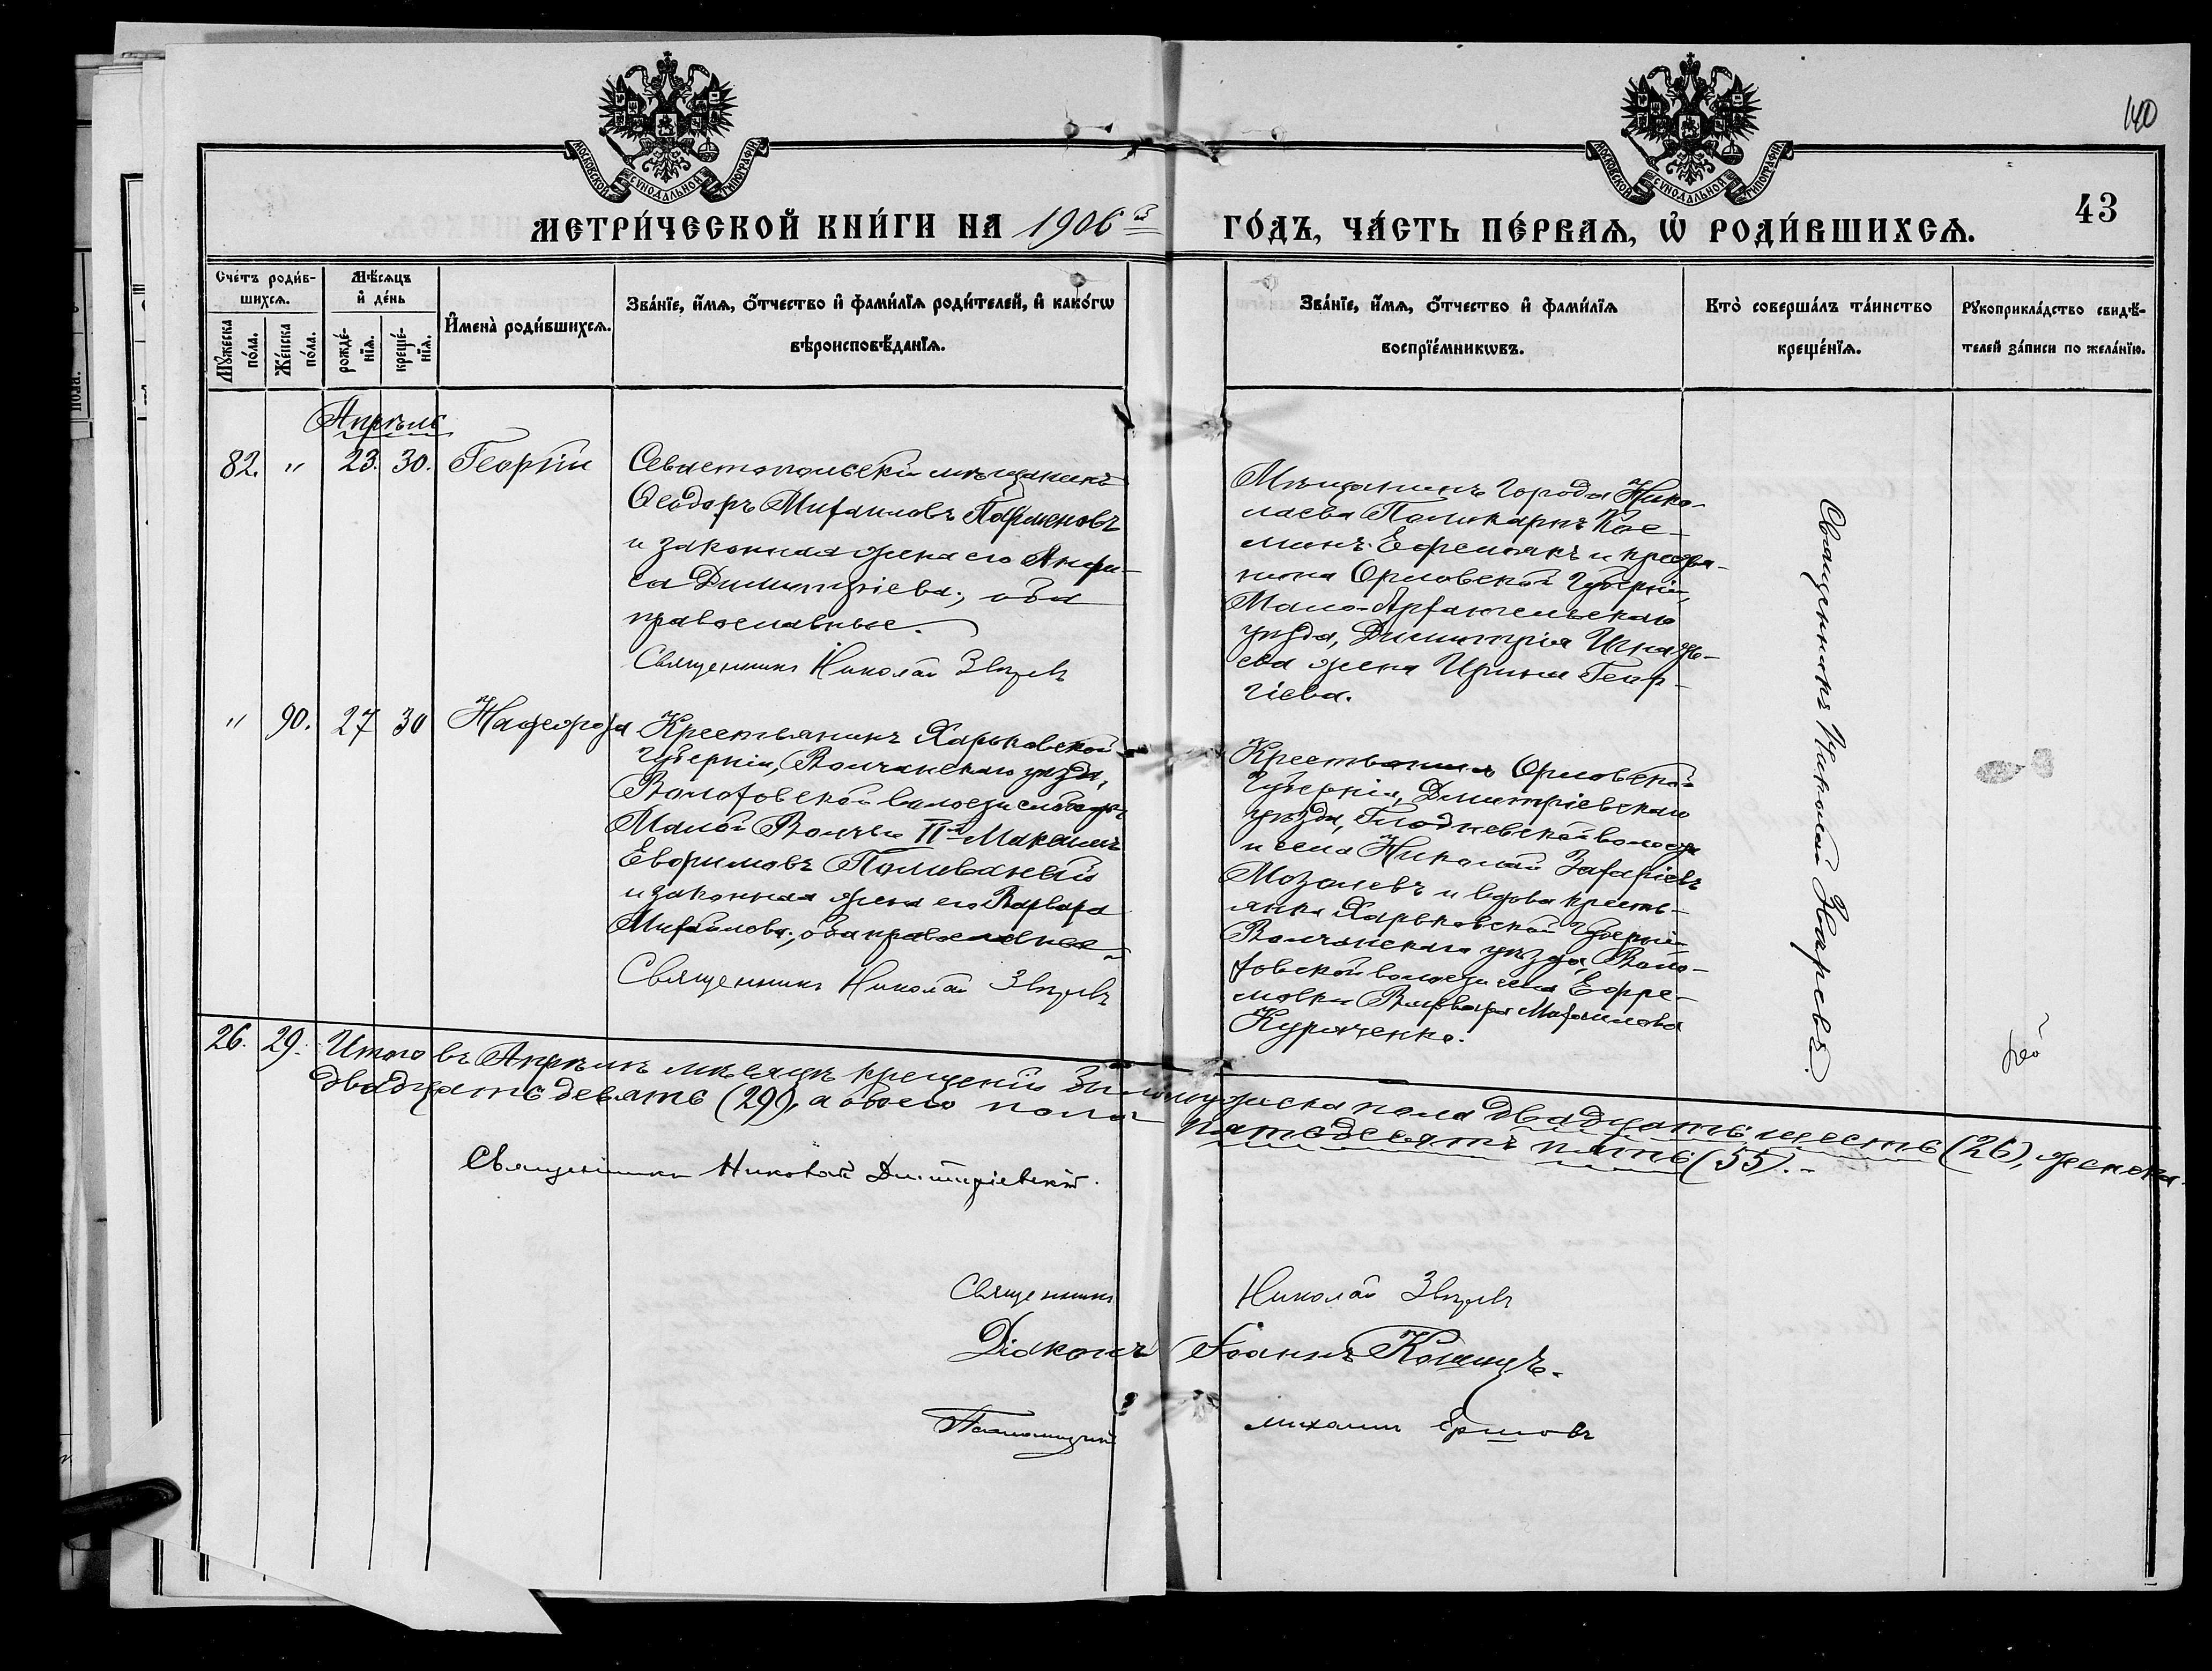 140
МОСКОВСКОЙ СѴНОДАЛЬНОЙ ТИПОГРАФІИ
МОСКОВСКОЙ СѴНОДАЛЬНОЙ ТИПОГРАФІИ
43
МЕТРИ́ЧЕСКОЙ КНИ́ГИ НА 1906 й ГО́ДЪ, ЧА́СТЬ ПЕ́РВАѦ, Ѽ РОДИ́ВШИХСѦ.
Сче́тъ роди́в-
шихсѧ.
Мꙋ́жеска по́ла.
Же́нска по́ла.
Мѣ́сѧцъ
и҆ де́нь
рожде́-
нїѧ.
креще́-
нїѧ.
И҆мена̀ роди́вшихсѧ.
Зва́нїе, и҆́мѧ, ѻ҆́тчество и҆ фами́лїѧ роди́телей, и҆ како́гѡ
вѣроисповѣ́данїѧ.
Зва́нїе, и҆́мѧ, ѻ҆́тчество и҆ фами́лїѧ
воспрїе́мникѡвъ.
Кто̀ соверша́лъ та́инство
креще́нїѧ.
Рꙋкоприкла́дство свидѣ́-
телей за́писи по жела́нїю.
Апрѣль
82. " 23. 30. Георгій
Севастопольскій мѣщанинъ
Ѳеодоръ Михаиловъ Парменовъ
и законная жена его Анфи-
са Димитріева; оба
православные.
Священникъ Николай Звѣревъ
Мѣщанинъ города Нико-
лаева Поликарпъ Кос-
минъ Ефремякъ и
Орловской губерніи,
Мало-Архангельскаго
уѣзда, Димитрія
жена Ирина Геор-
гіева.
Священникъ Николай
" 90. 27 30
Крестьянинъ Харьковской
губерніи, Волчанскаго уѣзда,
Волоховской волости слободы
Малой Волчьи II-й Максимъ
Евфимовъ Поливаный
и законная жена его Варвара
Михайлова; оба православные
Священникъ Николай Звѣревъ
Крестьянинъ Орловской
губерніи, Дмитріевскаго
уѣзда, Глодневской волости
и села Николай Захаріевъ
Мозалевъ и вдова кресть-
янка Харьковской губерніи
Волчанскаго уѣзда, Воло-
ховской волости села Ефре-
мовки Варвара Михаилова
Куряченко.
26. 29. Итого въ Апрѣлѣ мѣсяцѣ крещеній было мужеска пола двадцать шесть (26), женска
двадцать девять (29), а обоего пола пятьдесятъ пять (55).-
Священникъ Николай Димитріевскій.
Священникъ Николай Звѣревъ
Діаконъ Іоаннъ
Псаломщикъ Михаилъ Ершовъ